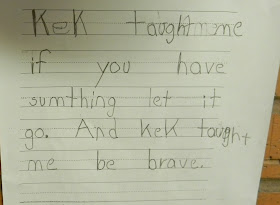 Kek taught me
if you have
sumthing let it
go. And kek taught
me be brave.